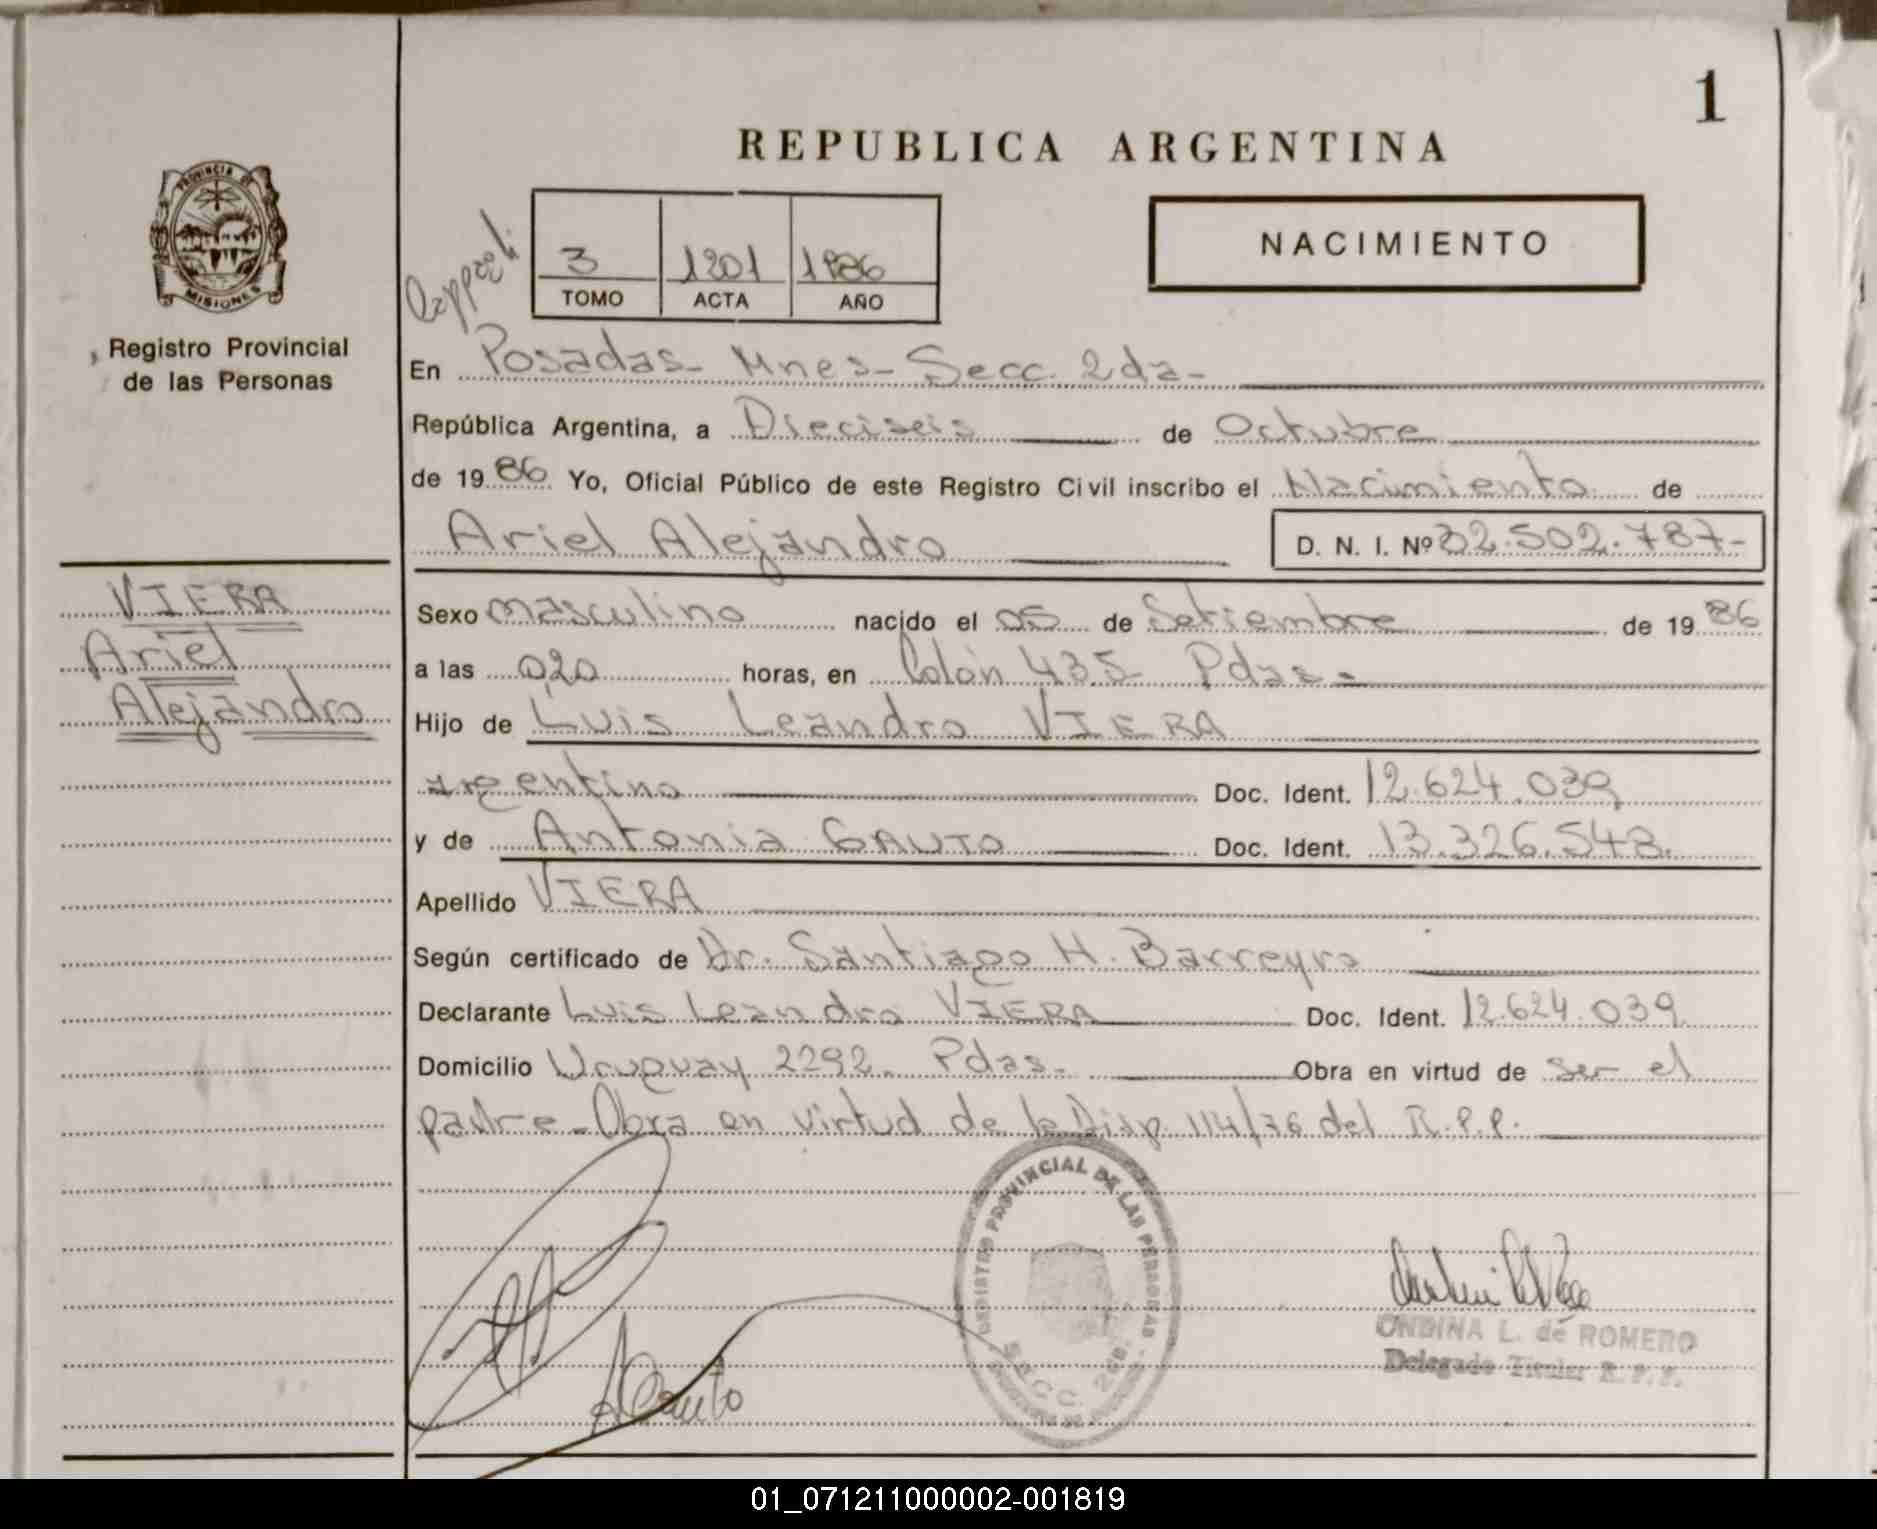 1
REPUBLICA ARGENTINA
PROVINCIA DE
MISIONES
Registro Provincial
de las Personas
3 1201 1986
TOMO ACTA AÑO
NACIMIENTO
En Posadas- Mnes- Secc. 2da-
República Argentina, a Dieciseis de Octubre
de 1986 Yo, Oficial Público de este Registro Civil inscribo el Nacimiento de
Ariel Alejandro D. N. I. Nº 32.502.787-
VIERA
Ariel
Alejandro
Sexo masculino nacido el 05 de Setiembre de 1986
a las 0,20 horas, en Colón 435 Pdas-
Hijo de Luis Leandro VIERA
argentino Doc. Ident. 12.624.039
y de Antonia GAUTO Doc. Ident. 13.326.548.
Apellido VIERA
Según certificado de Dr. Santiago H. Barreyro
Declarante Luis Leandro VIERA Doc. Ident. 12.624.039
Domicilio Uruguay 2292. Pdas. Obra en virtud de ser el
padre- Obra en virtud de la Disp. 114/76 del R.P.P.
REGISTRO PROVINCIAL DE LAS PERSONAS
SECC. 2da.
A Gauto
ONDINA L. de ROMERO
Delegado Titular R.P.P.
01_071211000002-001819